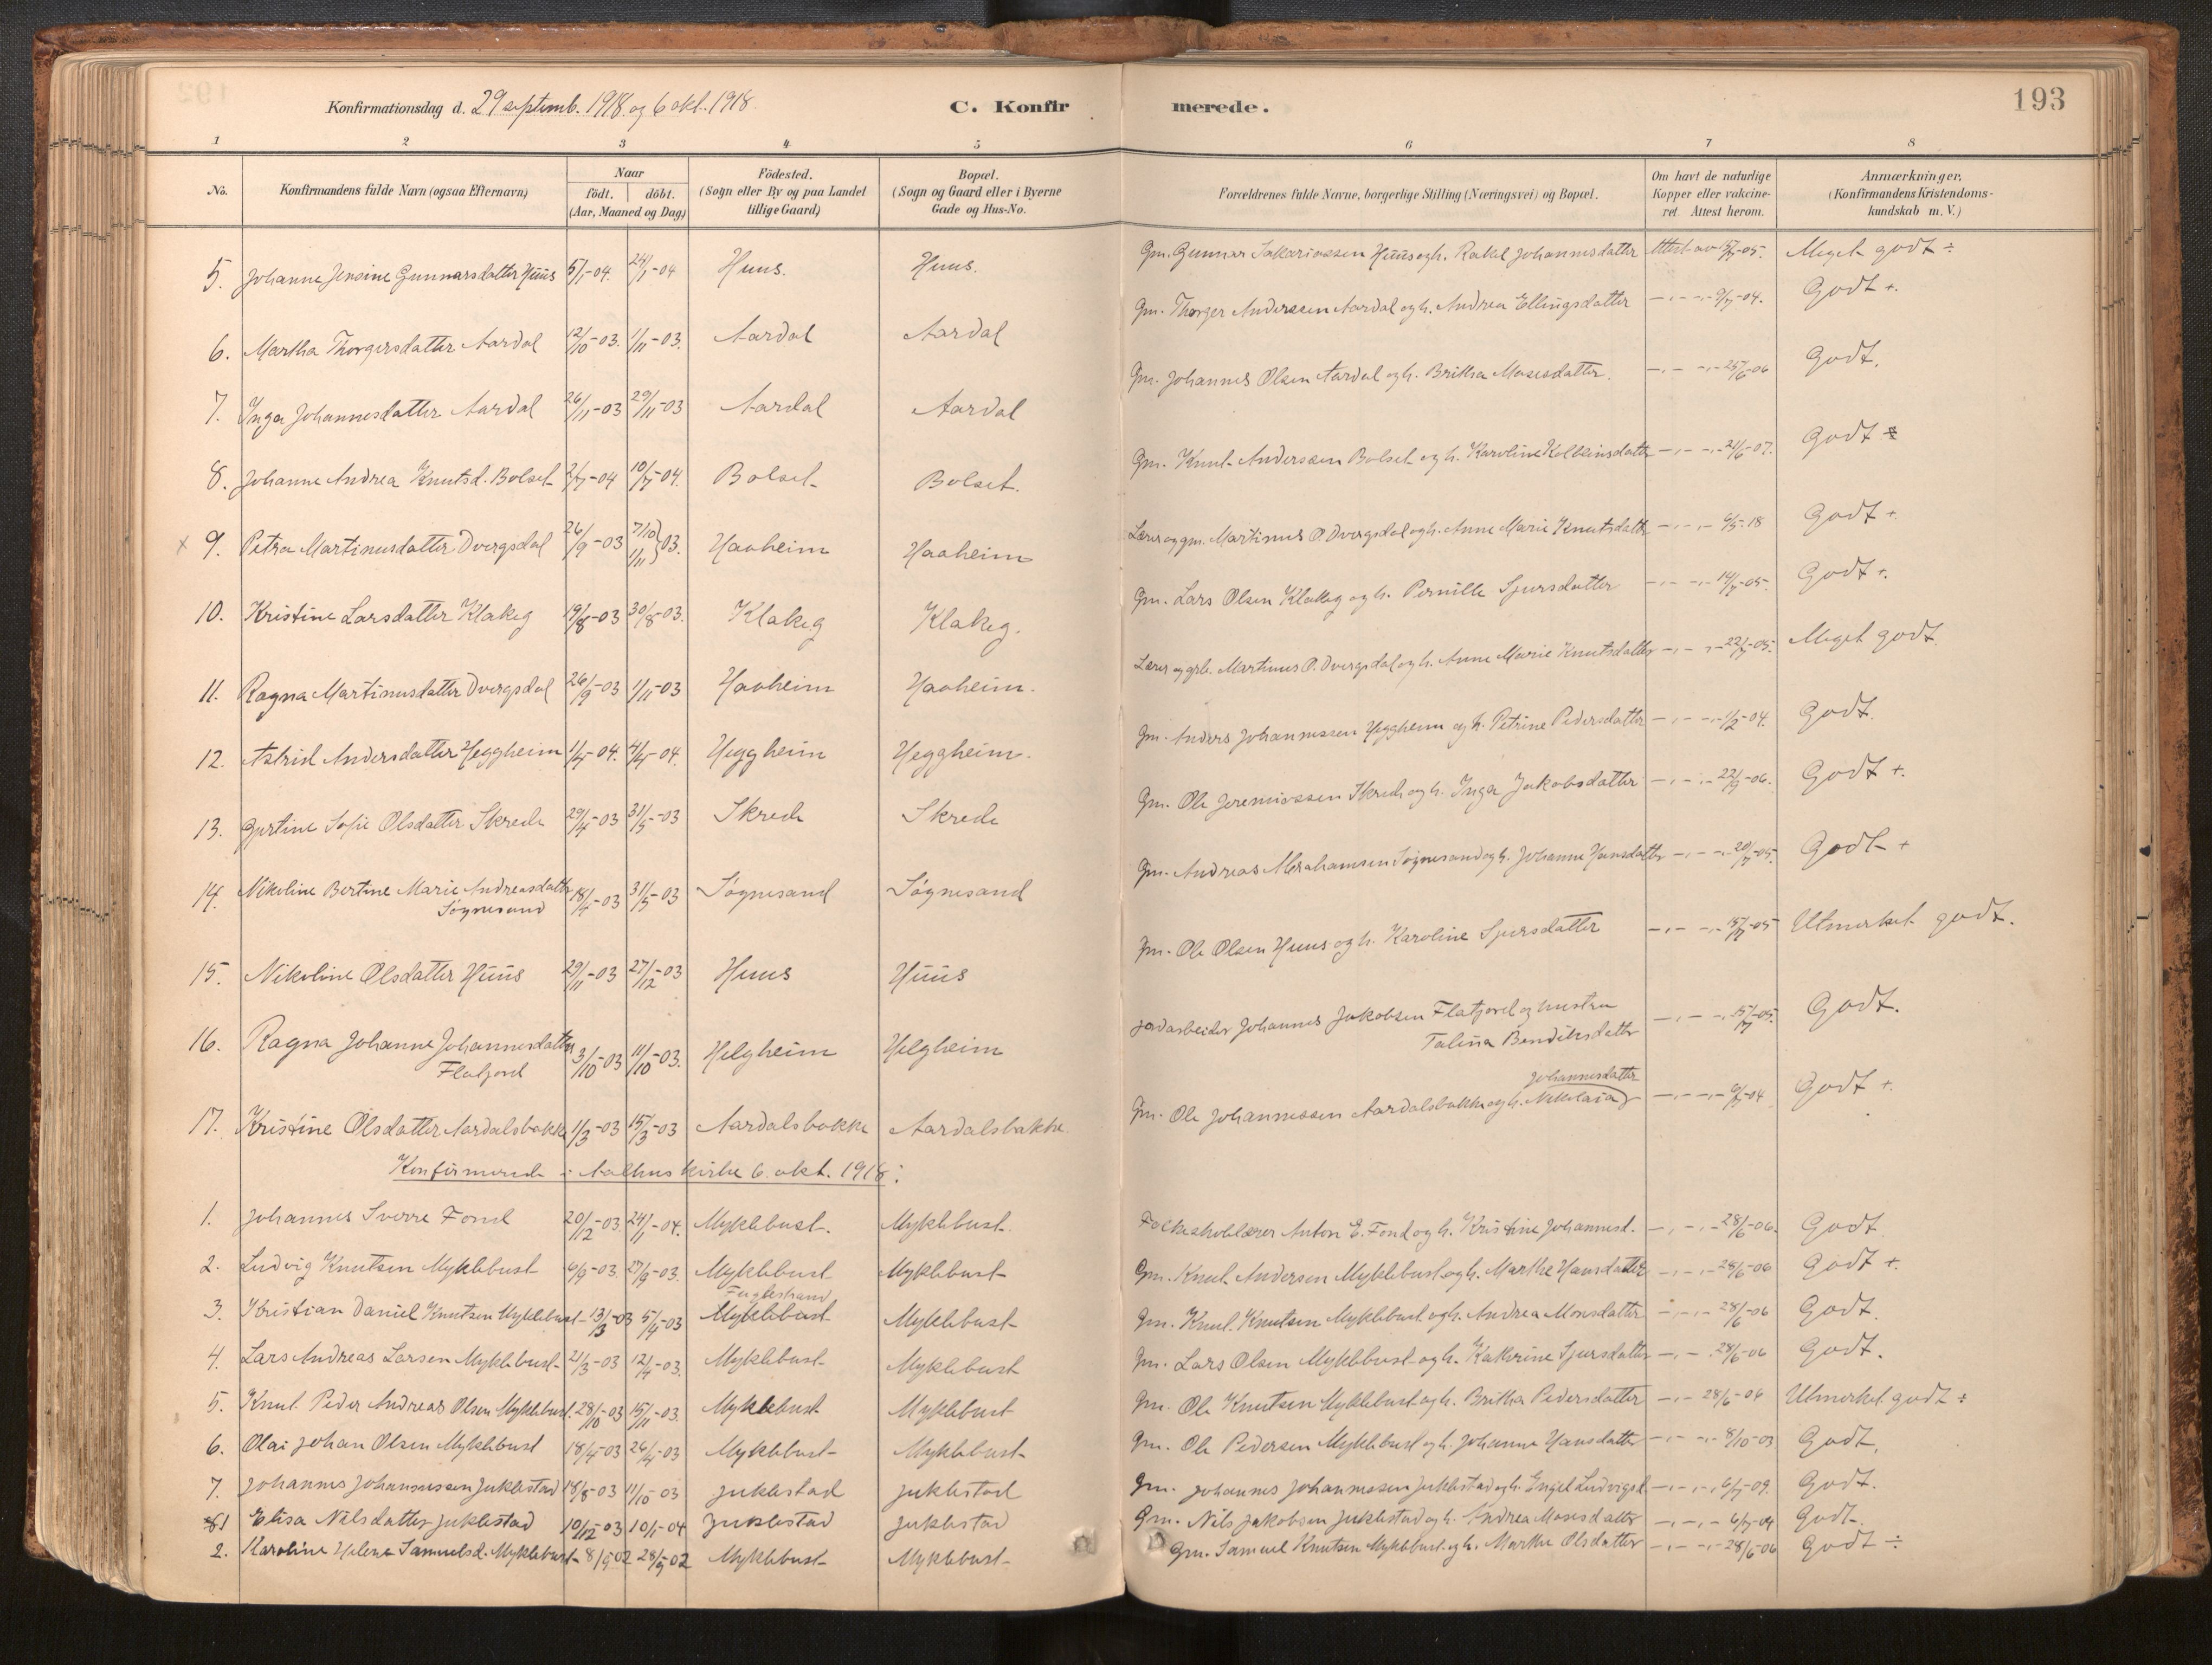 193
Konfirmationsdag d. 29 septemb. 1918 og 6 okt. 1918.
C. Konfirmerede.
1 2 3 4 5 6 7 8
No. | Konfirmandens fulde Navn (ogsaa Efternavn) | Naar födt. döbt. (Aar, Maaned og Dag) | Födested. (Sogn eller By og paa Landet tillige Gaard) | Bopæl. (Sogn og Gaard eller i Byerne Gade og Hus-No. | Forældrenes fulde Navne, borgerlige Stilling (Næringsvei) og Bopæl. | Om havt de naturlige Kopper eller vakcineret. Attest herom. | Anmærkninger, (Konfirmandens Kristendomskundskab m. V.)
5. Johanne Jensine Gunnarsdatter Huus 5/1-04. 24/1-04 Huus. Huus. Gm. Gunnar Sakariassen Huus og h. Rakel Johannesdatter Attest av -05. Meget godt ÷
6. Martha Thorgersdatter Aardal 12/10-03. 1/11-03. Aardal Aardal Gm. Thorger Anderssen Aardal og h. Andrea Ellingsdatter -04. Godt +.
7. Inga Johannesdatter Aardal 26/11-03 29/11-03 Aardal Aardal Gm. Johannes Olsen Aardal og h. Britha Mosesdatter. 25/6-06 Godt.
8. Johanne Andrea Knutsd. Bolset -04 10/7-04. Bolset Bolset. Gm. Knut Anderssen Bolset og h. Karoline Kolbeinsdatter 21/6-07. Godt
x 9. Petra Martinusdatter Dvergsdal 26/9-03 7/10 1/11 } 03. Haaheim Haaheim Lærer og gm. Martinus P. Dvergsdal og h. Anne Marie Knutsdatter 6/5-18 Godt +
10. Kristine Larsdatter Klakeg 19/8-03 30/8-03. Klakeg Klakeg. Gm. Lars Olsen Klakeg og h. Pernille Sjursdatter 14/7-05. Godt +.
11. Ragna Martinusdatter Dvergsdal 26/9-03 1/11-03 Haaheim Haaheim. Lærer og grb. Martinus P. Dvergsdal og h. Anne Marie Knutsdatter 22/7-05. Meget godt.
12. Astrid Andersdatter Heggheim 1/4-04. 4/4-04. Heggheim Heggheim. Gm. Anders Johannessen Heggheim og h. Petrine Pedersdatter -04. Godt.
13. Gjertine Sofie Olsdatter Skrede 29/4-03 31/5-03 Skrede Skrede Gm. Ole Jeremiassen Skrede og h. Inga Jakobsdatter 22/9-06. Godt +.
14. Nikoline Bertine Marie Andreasdatter Søgnesand 18/4-03 31/5-03 Søgnesand Søgnesand Gm. Andreas Abrahamsen Søgnesand og h. Johanne Hansdatter 20/7-05. Godt +
15. Nikoline Olsdatter Huus 29/11-03 27/12-03 Huus Huus Gm. Ole Olsen Huus og h. Karoline Sjursdatter 15/7-05 Utmerket godt.
16. Ragna Johanne Johannesdatter Flatjord 3/10-03 11/10-03. Helgheim Helgheim Jordarbeider Johannes Jakobsen Flatjord og hustru Talina Bendiksdatter 15/7-05. Godt.
17. Kristine Olsdatter Aardalsbakke 1/3-03 15/3-03 Aardalsbakke Aardalsbakke. Gm. Ole Johannessen Aardalsbakke og h. Nikolaia Johannesdatter -04 Godt +.
Konfirmerede i Aalhus kirke 6. okt. 1918:
1. Johannes Sverre Fond 20/12-03 24/1-04. Myklebust. Myklebust. Folkeskolelærer Anton E. Fond og h. Kristine Johannesd. 28/6-06. Godt
2. Ludvig Knutsen Myklebust 6/9-03. 27/9-03. Myklebust Myklebust Gm. Knut Andersen Myklebust og h. Marthe Hansdatter 28/6-06 Godt +.
3. Kristian Daniel Knutsen Myklebust 13/3-03 5/4-03 Fuglestrand Myklebust Myklebust Gm. Knut Knutsen Myklebust og h. Andrea Monsdatter 28/6-06 Godt.
4. Lars Andreas Larsen Myklebust 21/3-03 12/4-03. Myklebust Myklebust Gm. Lars Olsen Myklebust og h. Kathrine Sjursdatter 28/6-06 Godt.
5. Knut Peder Andreas Olsen Myklebust 28/10-03 15/11-03. Myklebust Myklebust Gm. Ole Knutsen Myklebust og h. Britha Pedersdatter 28/6-06 Utmerket godt ÷
6. Olai Johan Olsen Myklebust 18/4-03 26/4-03 Myklebust Myklebust Gm. Ole Pedersen Myklebust og h. Johanne Hansdatter 8/10-03 Godt.
7. Johannes Johannessen Juklestad 18/8-03 11/10-03 Juklestad Juklestad Gm. Johannes Johannessen Juklestad og h. Engel Ludvigsd. 6/7-09. Godt.
1 Elisa Nilsdatter Juklestad 10/12-03 10/1-04 Juklestad Juklestad Gm. Nils Jakobsen Juklestad og h. Andrea Mosesdatter 6/7-04 Godt.
2. Karoline Helene Samuelsd. Myklebust 8/9-02 28/9-02 Myklebust Myklebust Gm. Samuel Knutsen Myklebust og h. Marthe Olsdatter 28/6-06 Godt ÷